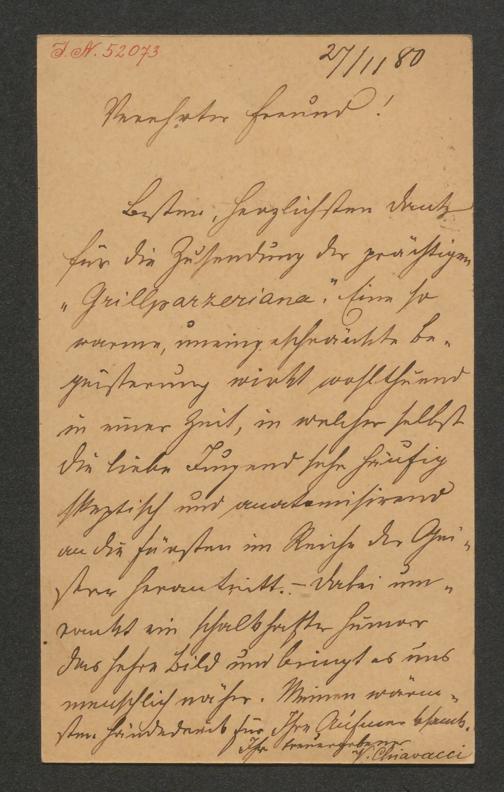 I. N. 52073
27/11 80
Verehrter Freund!
Besten, herzlichsten Dank
für die Zusendung der prächtigen
„Grillparzeriana". Eine so
warme, uneingeschränkte Be-
geisterung wirkt wohlthuend
in einer Zeit, in welcher selbst
die liebe Jugend sehr häufig
skeptisch und anatomisirend
an die Fürsten im Reiche der Gei-
ster herantritt. – Dabei um-
rankt ein schalkhafter Humor
das hehre Bild und bringt es uns
menschlich näher. Meinen wärm-
sten Händedruck für Ihre Aufmerksamk.
Ihr treuergebener
V. Chiavacci